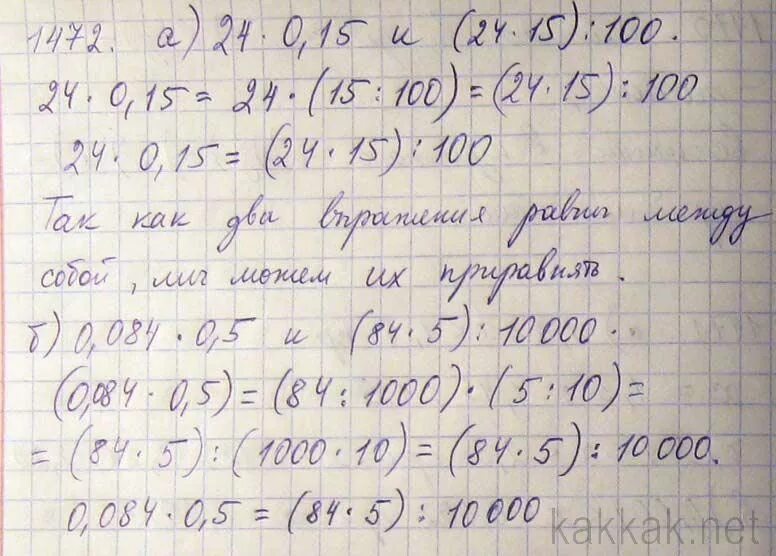 1472. а) 24 · 0,15 и (24·15):100.
24 · 0,15 = 24 · (15:100) = (24·15):100
24 · 0,15 = (24·15):100
Так как два выражения равны между
собой, мы можем их приравнять.
б) 0,084 · 0,5 и (84·5):10000.
(0,084 · 0,5) = (84:1000)·(5:10) =
= (84·5):(1000·10) = (84·5):10000.
0,084 · 0,5 = (84·5):10000
kakkak.net